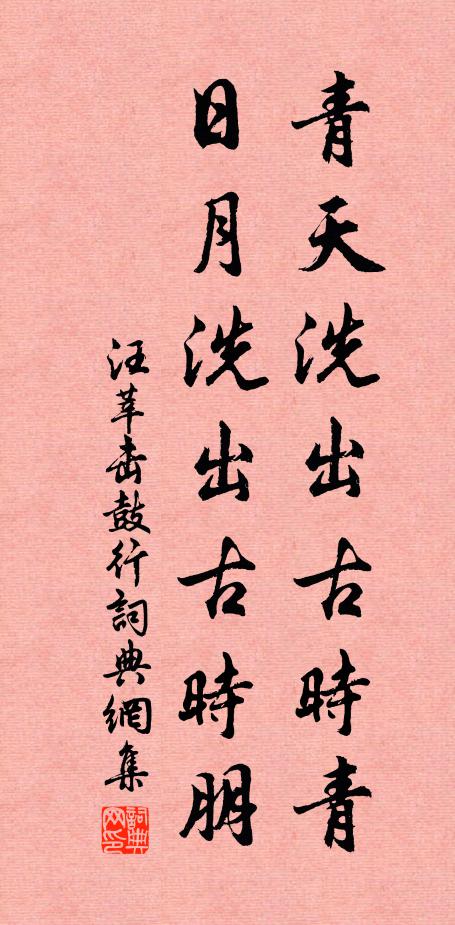 青天洗出古時青
日月洗出古時朋
汪莘击鼓行詞典網集
詞典网印